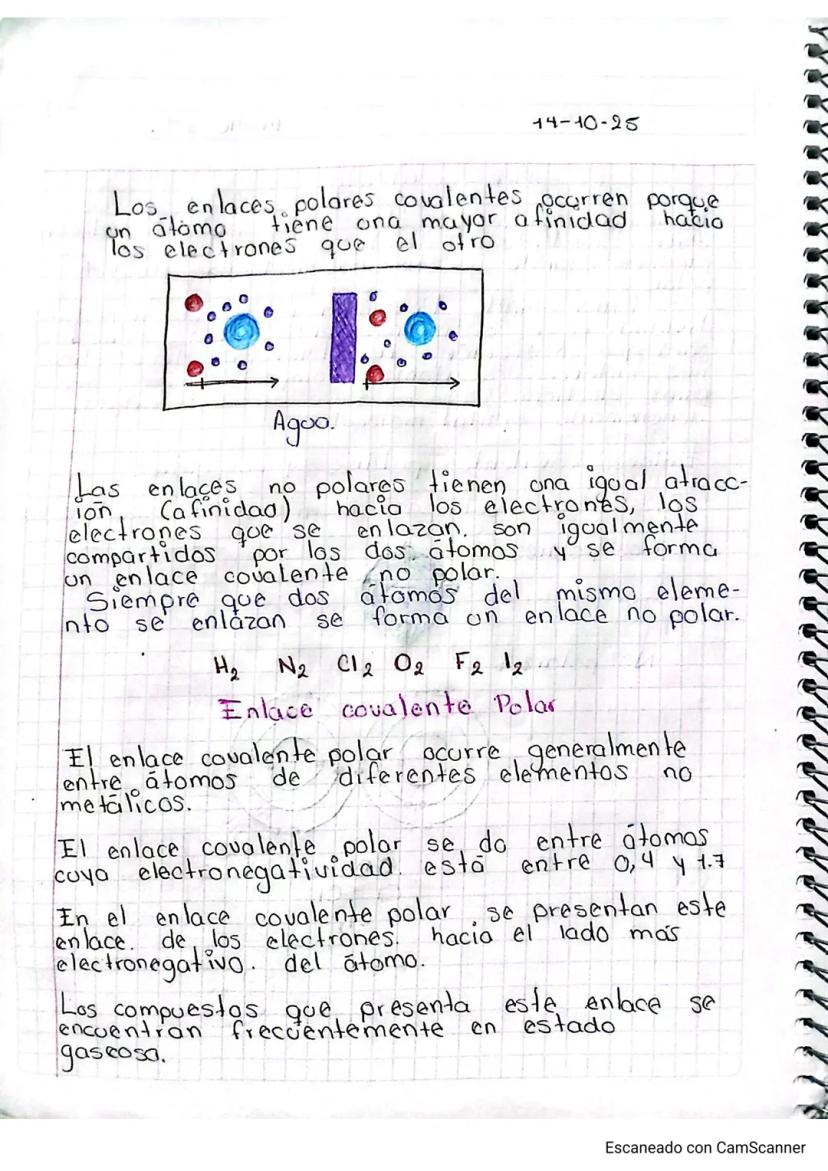 14-10-25
Los enlaces polares covalentes ocurren porque
un átomo tiene una mayor afinidad hacia
los electrones que el otro
Agua.
Las enlaces no polares tienen una igual atracc-
ión (afinidad) hacia los electrones, los
electrones que se enlazan. son igualmente
compartidos por los dos átomos y se forma
un enlace covalente no polar.
Siempre que dos átomos del mismo eleme-
nto se enlazan se forma un enlace no polar.
H₂ N₂ Cl₂ O₂ F₂ I₂
Enlace covalente Polar
El enlace covalente polar ocurre generalmente
entre átomos de diferentes elementos no
metálicos.
El enlace covalente polar se da entre átomos
cuya electronegatividad está entre 0,4 y 1.7
En el enlace covalente polar se presentan este
enlace. de los electrones. hacia el lado más
electronegativo. del átomo.
Los compuestos que presenta este enlace se
encuentran frecuentemente en estado
gaseosa.
Escaneado con CamScanner